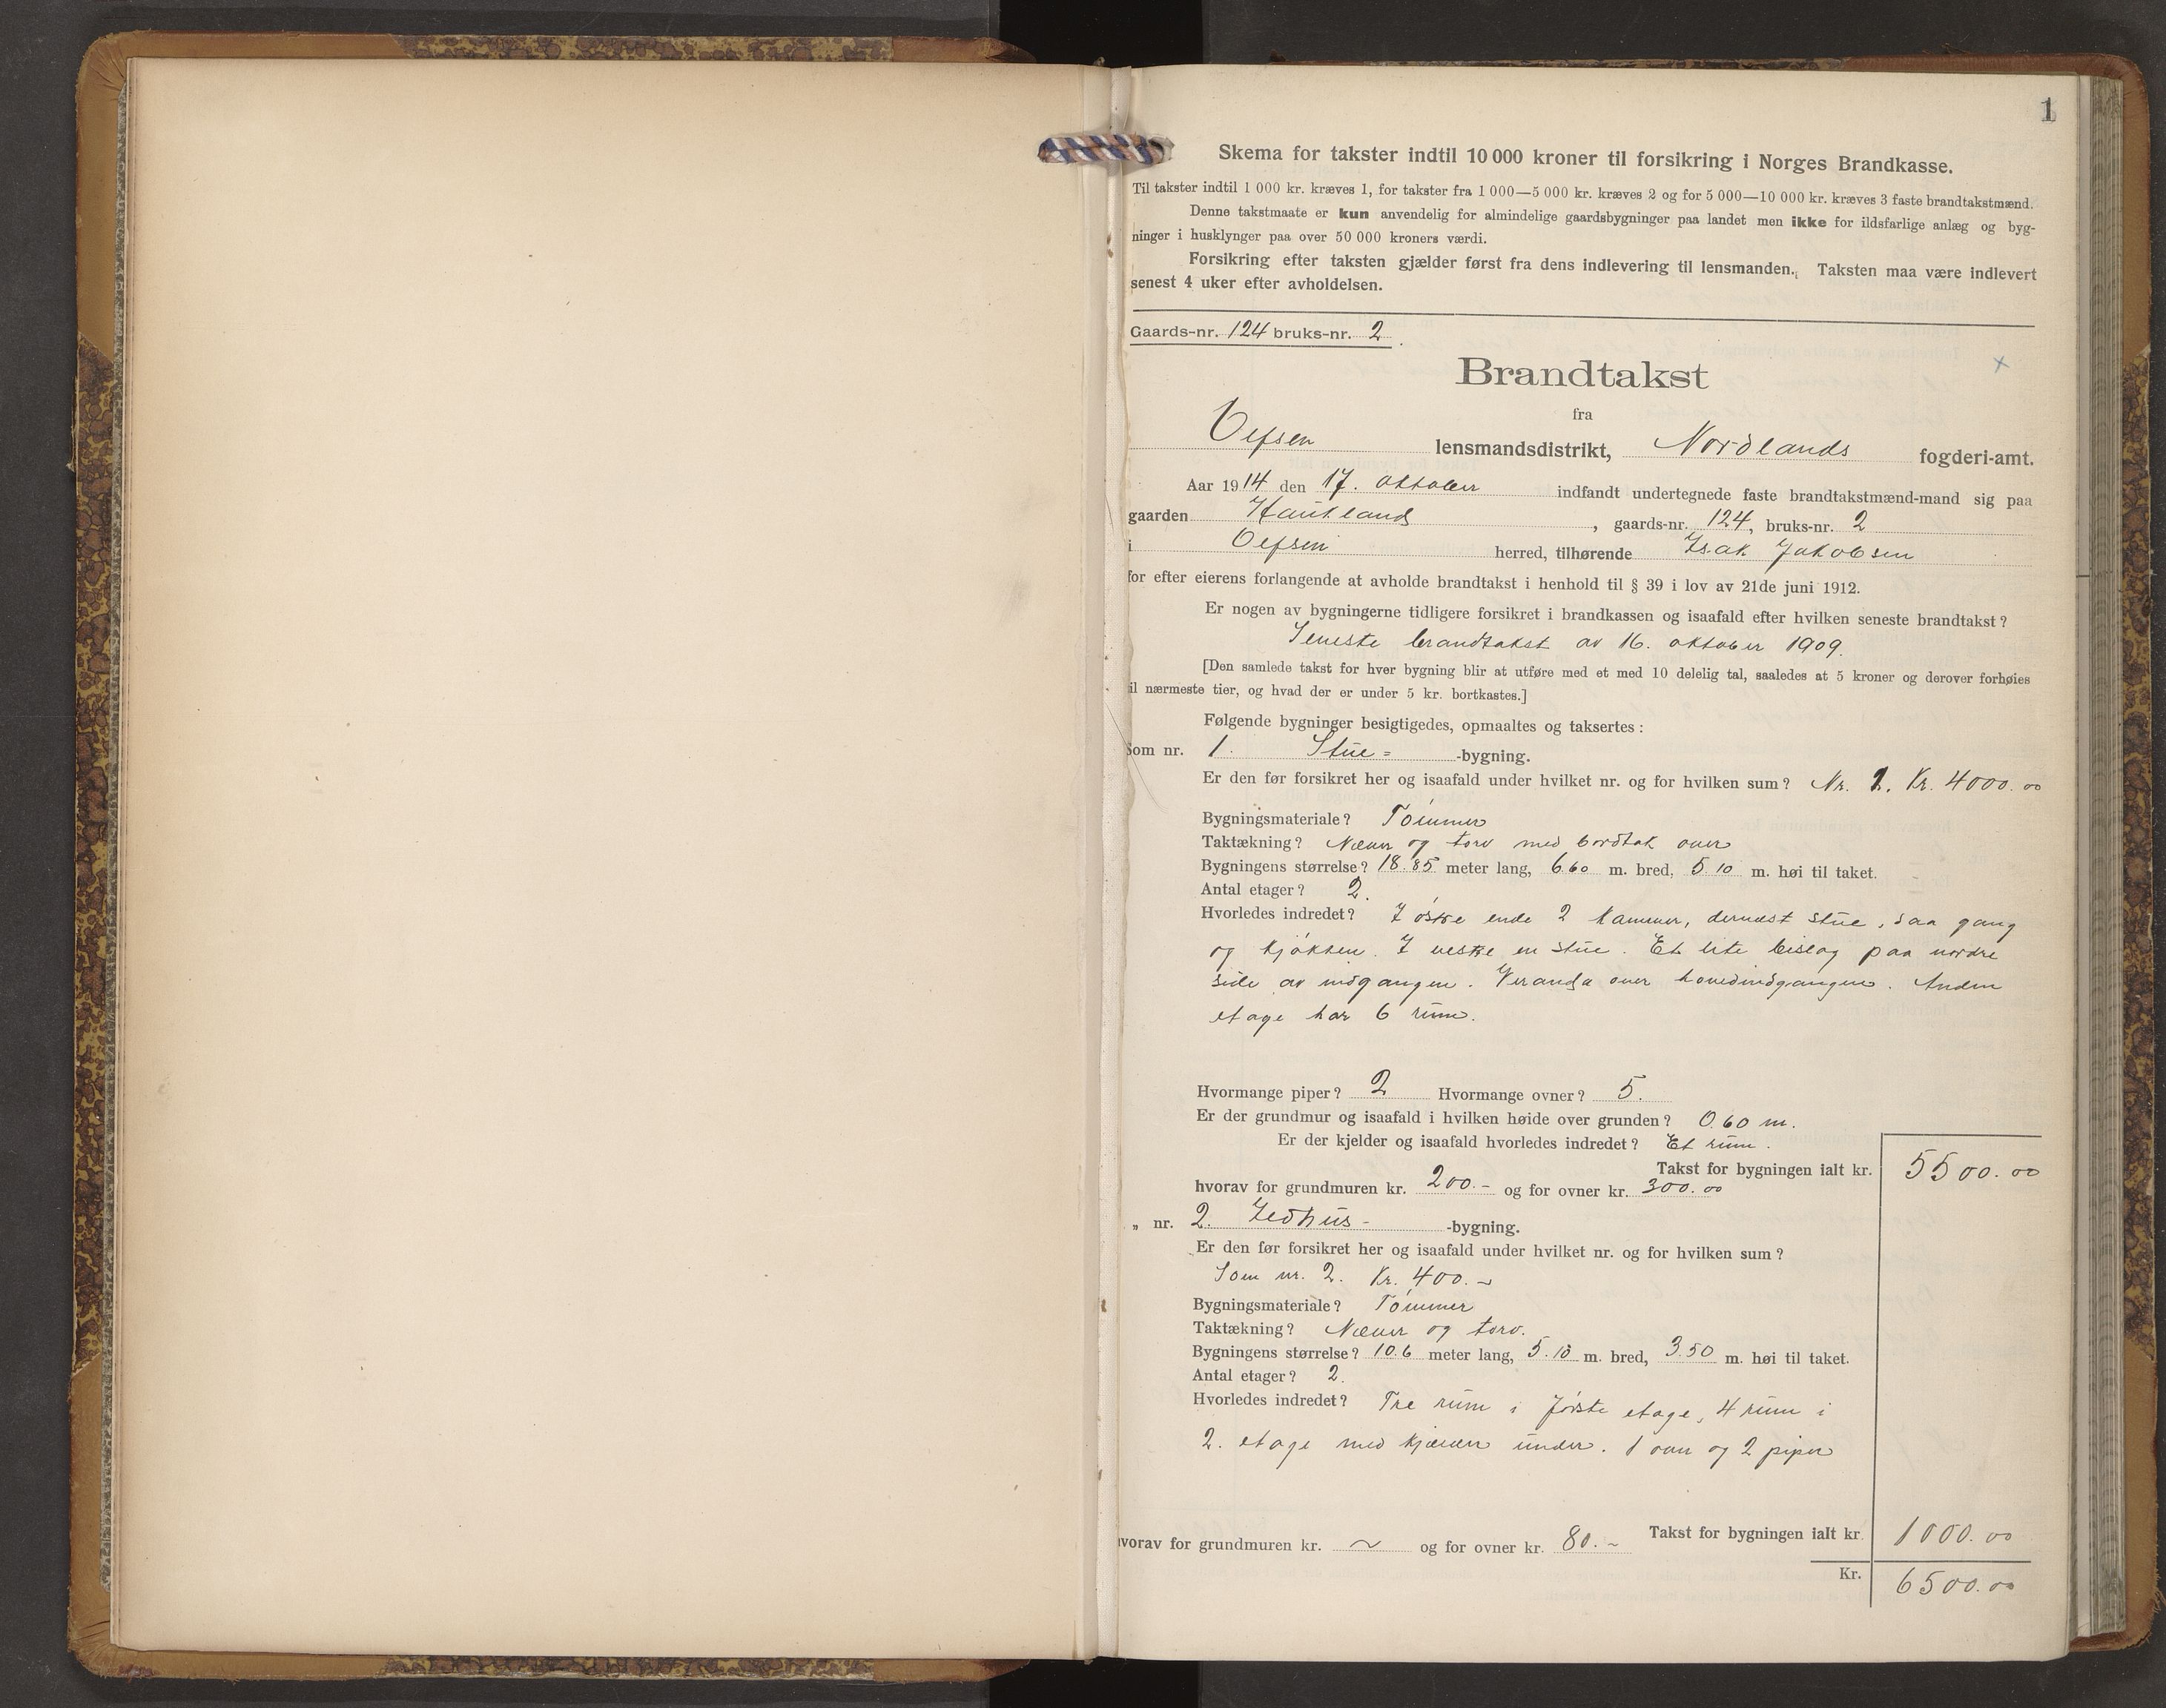 1
Skema for takster indtil 10 000 kroner til forsikring i Norges Brandkasse.
Til takster indtil 1 000 kr. kræves 1, for takster fra 1 000—5 000 kr. kræves 2 og for 5 000—10 000 kr. kræves 3 faste brandtakstmænd.
Denne takstmaate er kun anvendelig for almindelige gaardsbygninger paa landet men ikke for ildsfarlige anlæg og byg-
ninger i husklynger paa over 50 000 kroners værdi.
Forsikring efter taksten gjælder først fra dens indlevering til lensmanden. Taksten maa være indlevert
senest 4 uker efter avholdelsen.
Gaards-nr. 124 bruks-nr. 2
Brandtakst
fra
Vefsen lensmandsdistrikt, Nordlands fogderi-amt.
Aar 1914 den 17. oktober indfandt undertegnede faste brandtakstmænd-mand sig paa
gaarden Hauklands, gaards-nr. 124, bruks-nr. 2
i Vefsen herred, tilhørende Isak Jakobsen
for efter eierens forlangende at avholde brandtakst i henhold til § 39 i lov av 21de juni 1912.
Er nogen av bygningerne tidligere forsikret i brandkassen og isaafald efter hvilken seneste brandtakst?
Seneste brandtakst av 16. oktober 1909.
[Den samlede takst for hver bygning blir at utføre med et med 10 delelig tal, saaledes at 5 kroner og derover forhøies
il nærmeste tier, og hvad der er under 5 kr. bortkastes.]
Følgende bygninger besigtigedes, opmaaltes og taksertes:
Som nr. 1. Stue= -bygning.
Er den før forsikret her og isaafald under hvilket nr. og for hvilken sum? Nr. 1. Kr. 4000.00
Bygningsmateriale? Tømmer
Taktækning? Næver og torv med bordtak over
Bygningens størrelse? 18.85 meter lang, 6.60 m. bred, 5.10 m. høi til taket.
Antal etager? 2.
Hvorledes indredet? I østre ende 2 kammer, dernæst stue, saa gang
og kjøkken. I vestre en stue. Et lite bislag paa nordre
side av indgangen. Veranda over hovedindgangen. Anden
etage har 6 rum.
Hvormange piper? 2 Hvormange ovner? 5.
Er der grundmur og isaafald i hvilken høide over grunden? 0.60 m.
Er der kjelder og isaafald hvorledes indredet? Et rum.
Takst for bygningen ialt kr. 5500.00
hvorav for grundmuren kr. 200.- og for ovner kr. 300.00
„ nr. 2. Ildhus- -bygning.
Er den før forsikret her og isaafald under hvilket nr. og for hvilken sum?
Som nr. 2. Kr. 400.-
Bygningsmateriale? Tømmer
Taktækning? Næver og torv.
Bygningens størrelse? 10.6 meter lang, 5.10 m. bred, 3.50 m. høi til taket.
Antal etager? 2.
Hvorledes indredet? Tre rum i første etage, 4 rum i
2. etage med kjælder under. 1 ovn og 2 piper
Takst for bygningen ialt kr. 1000.00
vorav for grundmuren kr. ~ og for ovner kr. 80.-
Kr. 6500.00